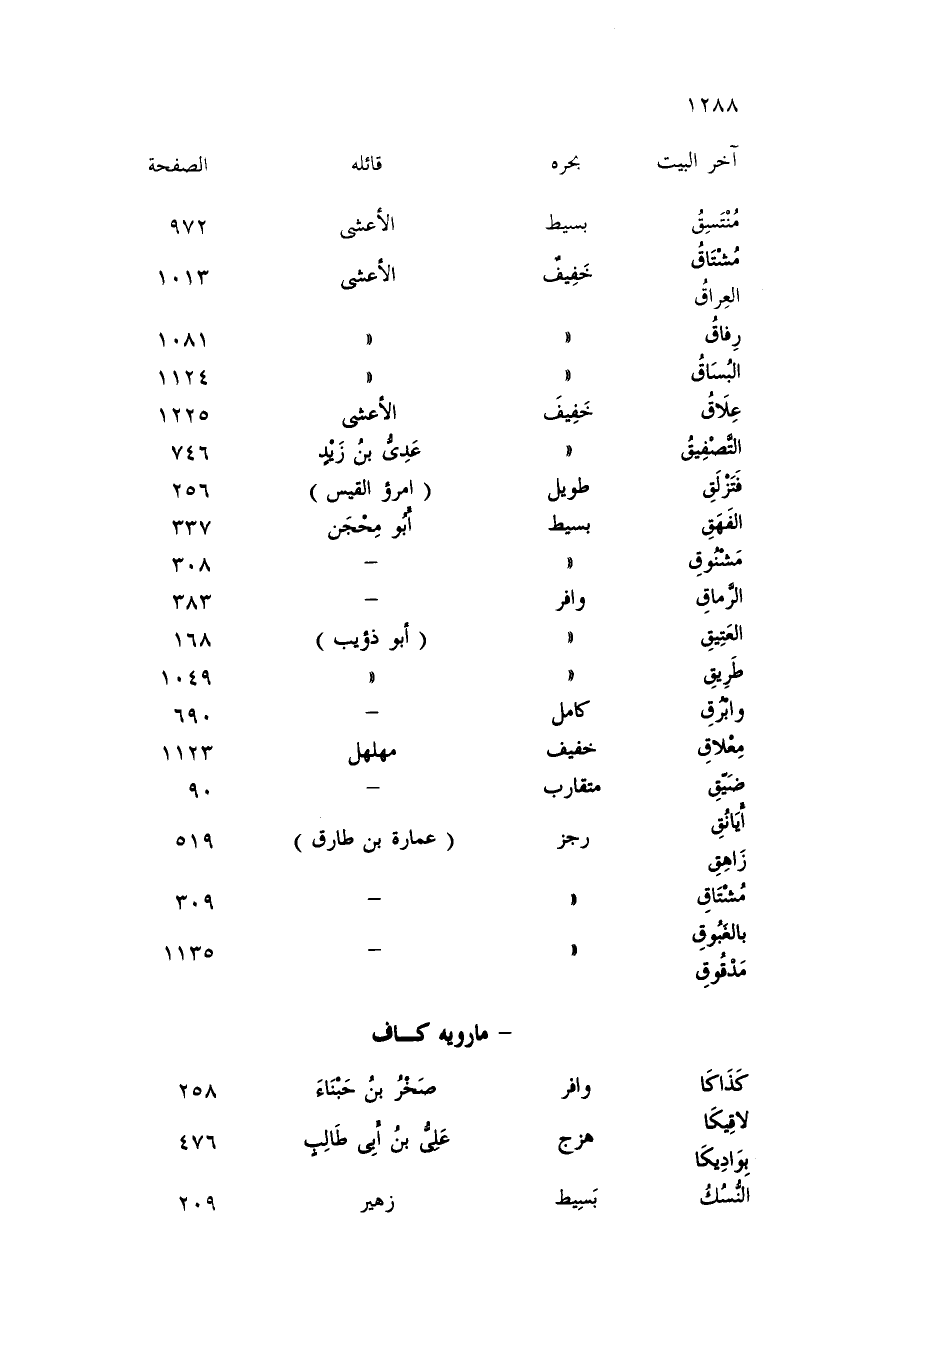 ١٢٨٨
آخر البيت بحره قائله الصفحة
مُنْتَسِقُ بسيط الأعشى ٩٧٢
مُشْتَاقُ
خَفِيفٌ الأعشى ١٠١٣
العِراقُ
رِفاقُ » » ١٠٨١
البُسَاقُ » » ١١٢٤
عِلَاقُ خَفِيفَ الأعشى ١٢٢٥
التَّصْفِيقُ » عَدِىُّ بنُ زَيْدٍ ٧٤٦
فَتَزْلَقِ طويل ( امرؤ القيس ) ٢٥٦
الفَهَقِ بسيط أَبُو مِحْجَن ٣٣٧
مَشْنُوقِ » – ٣٠٨
الرَّماقِ وافر – ٣٨٣
العَتِيقِ » ( أبو ذؤيب ) ١٦٨
طَرِيقِ » » ١٠٤٩
وابْرُقِ كامل – ٦٩٠
مِعْلاقِ خفيف مهلهل ١١٢٣
ضَيِّقِ متقارب – ٩٠
أَيَانُقِ
رجز ( عمارة بن طارق ) ٥١٩
زَاهِقِ
مُشْتَاقِ » – ٣٠٩
بالغَبُوقِ
» – ١١٣٥
مَدْقُوقِ
– مارويه كـاف
كَذَاكَا وافر صَخْرُ بنُ حَبْنَاءَ ٢٥٨
لاقِيكَا
هزج عَلِىُّ بنُ أَبِى طَالِبٍ ٤٧٦
بِوَادِيكَا
النُّسُكُ بَسِيط زهير ٢٠٩